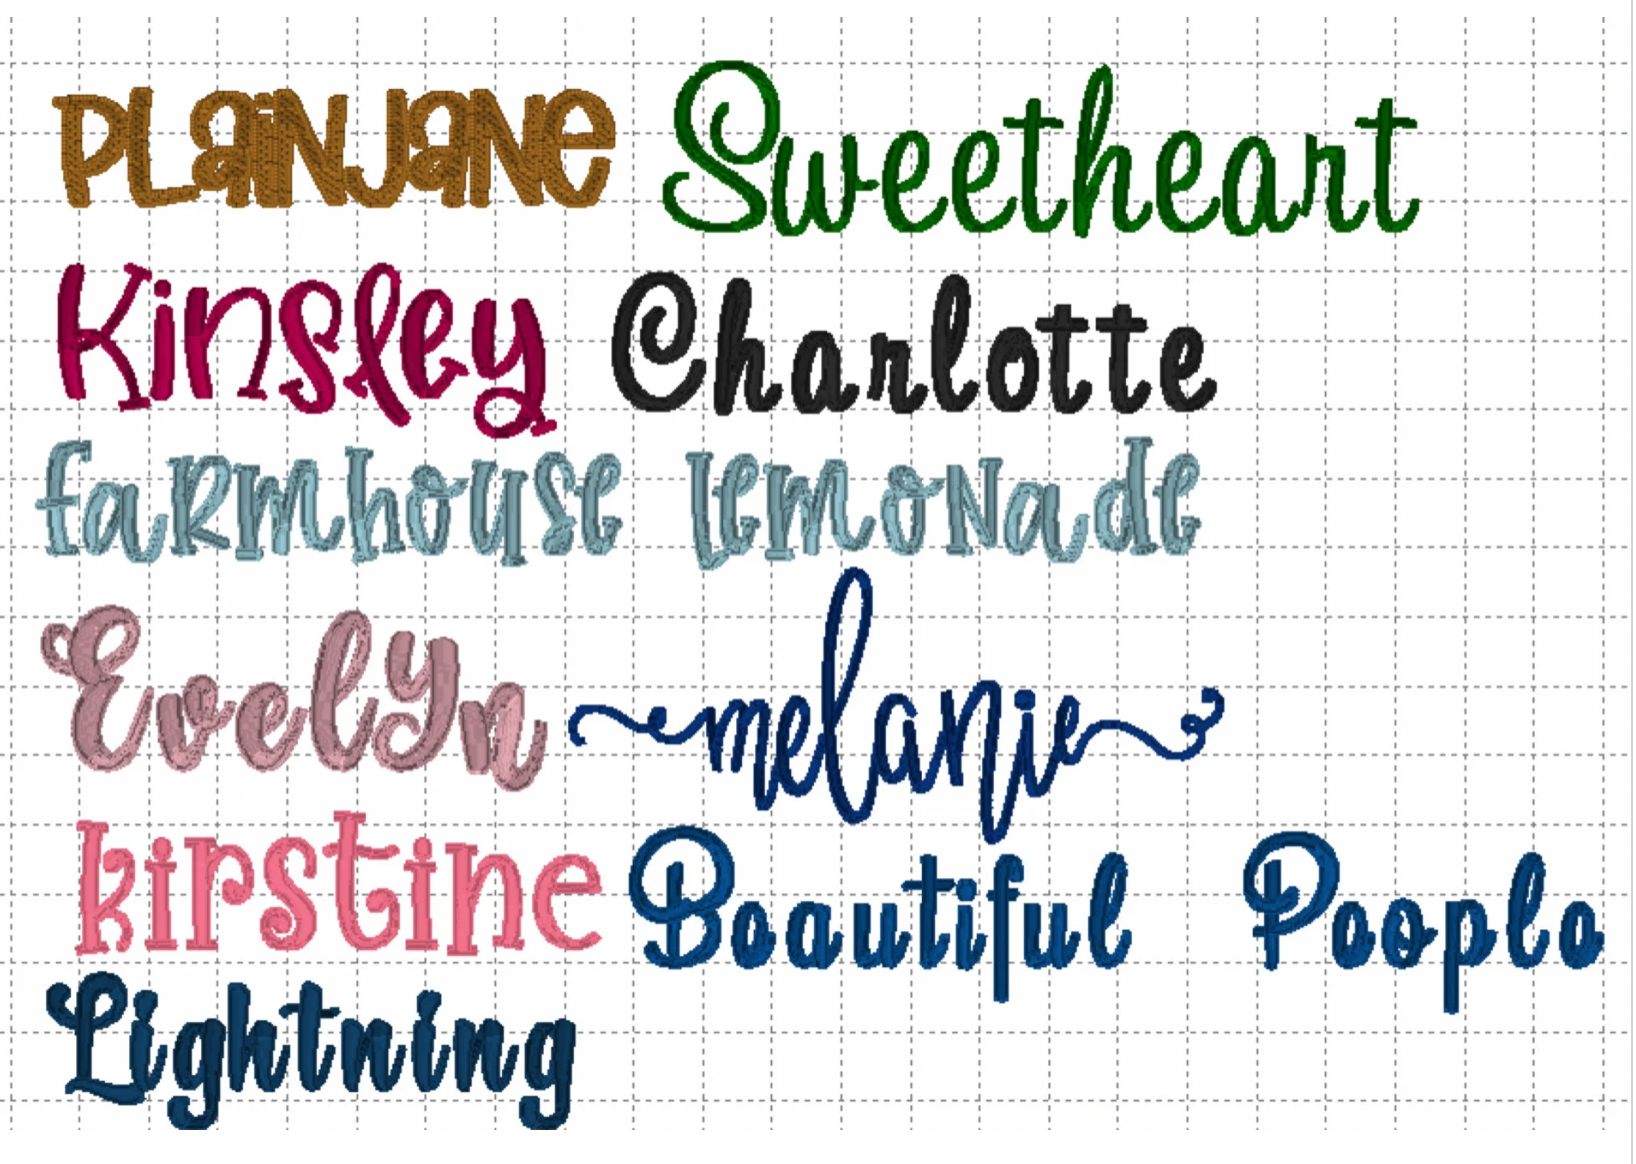 PLaiNJaNe Sweetheart
Kinsley Charlotte
faRmhouse LemoNade
Evelyn melanie
kirstine Beautiful People
Lightning